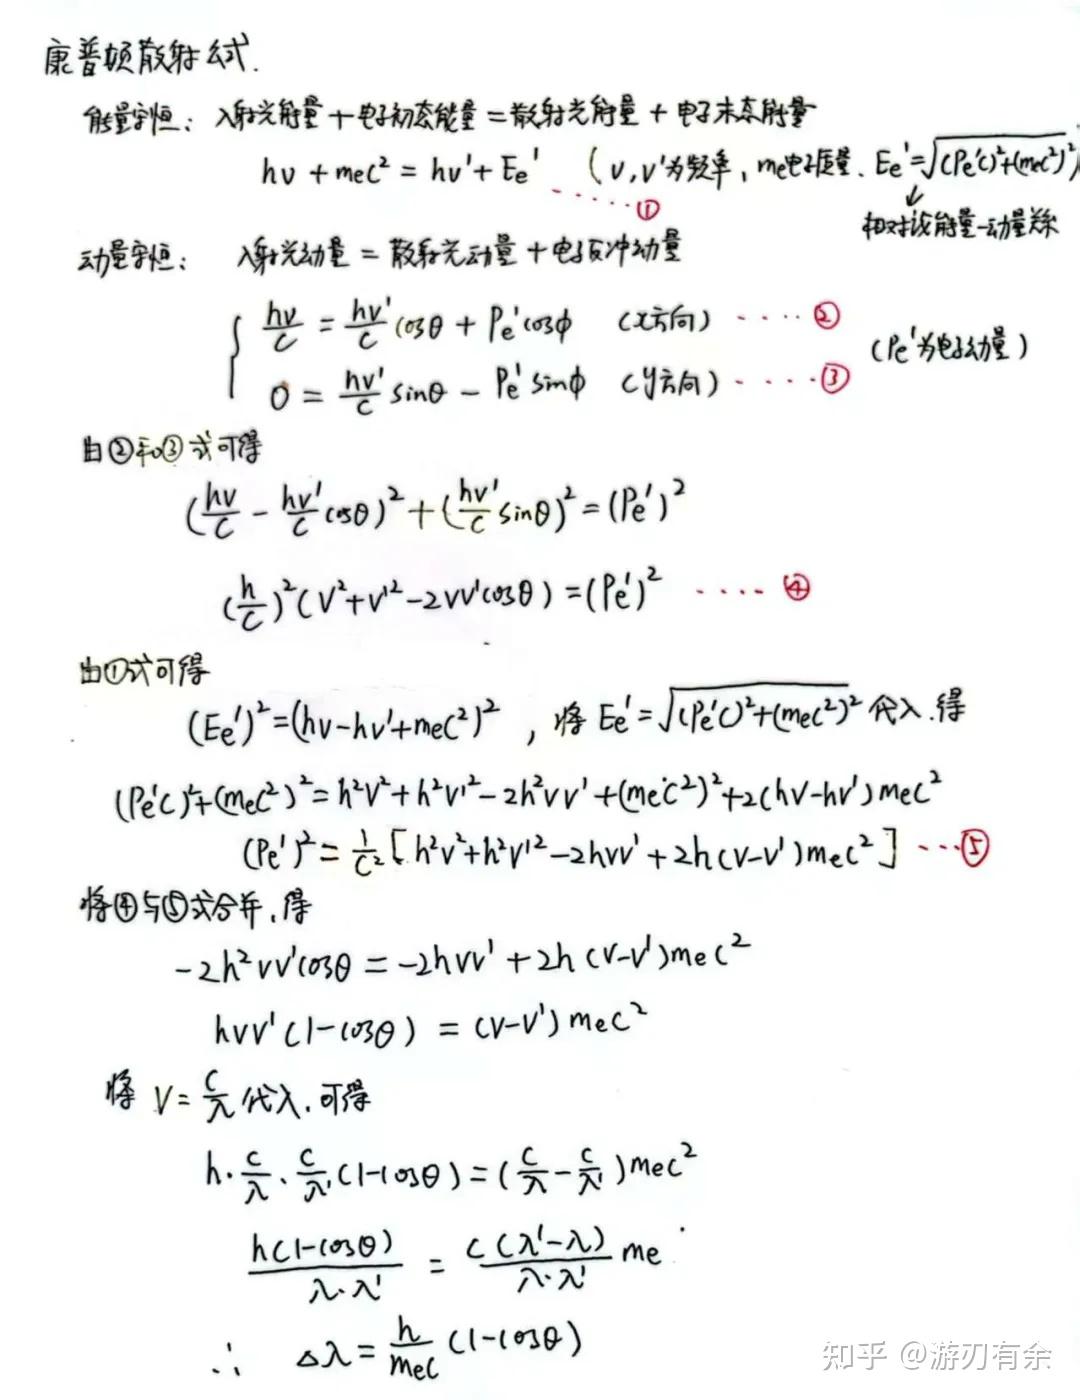 康普顿散射公式.
能量守恒: 入射光能量+电子初态能量=散射光能量+电子末态能量
hν + mec² = hν' + Ee' (ν,ν'为频率, me电子质量. Ee'=√((Pe'c)²+(mec²)²)
·····①
相对论能量-动量关系
动量守恒: 入射光动量=散射光动量+电子反冲动量
hν/c = hν'/c cosθ + Pe'cosφ (x方向) ····②
(Pe'为电子动量)
0 = hν'/c sinθ - Pe'sinφ (y方向) ····③
由②和③式可得
(hν/c - hν'/c cosθ)² + (hν'/c sinθ)² = (Pe')²
(h/c)²(ν²+ν'²-2νν'cosθ) = (Pe')² ····④
由①式可得
(Ee')²=(hν-hν'+mec²)², 将 Ee'=√((Pe'c)²+(mec²)²) 代入.得
(Pe'c)²+(mec²)²=h²ν²+h²ν'²-2h²νν'+(mec²)²+2(hν-hν')mec²
(Pe')²=1/c²[h²ν²+h²ν'²-2hνν'+2h(ν-ν')mec²] ···⑤
将④与⑤式合并,得
-2h²νν'cosθ=-2hνν'+2h(ν-ν')mec²
hνν'(1-cosθ) = (ν-ν')mec²
将 ν=c/λ 代入.可得
h·c/λ·c/λ'(1-cosθ)=(c/λ-c/λ')mec²
h(1-cosθ)/λ·λ' = c(λ'-λ)/λ·λ' me
∴ △λ=h/mec (1-cosθ)
知乎 @游刃有余